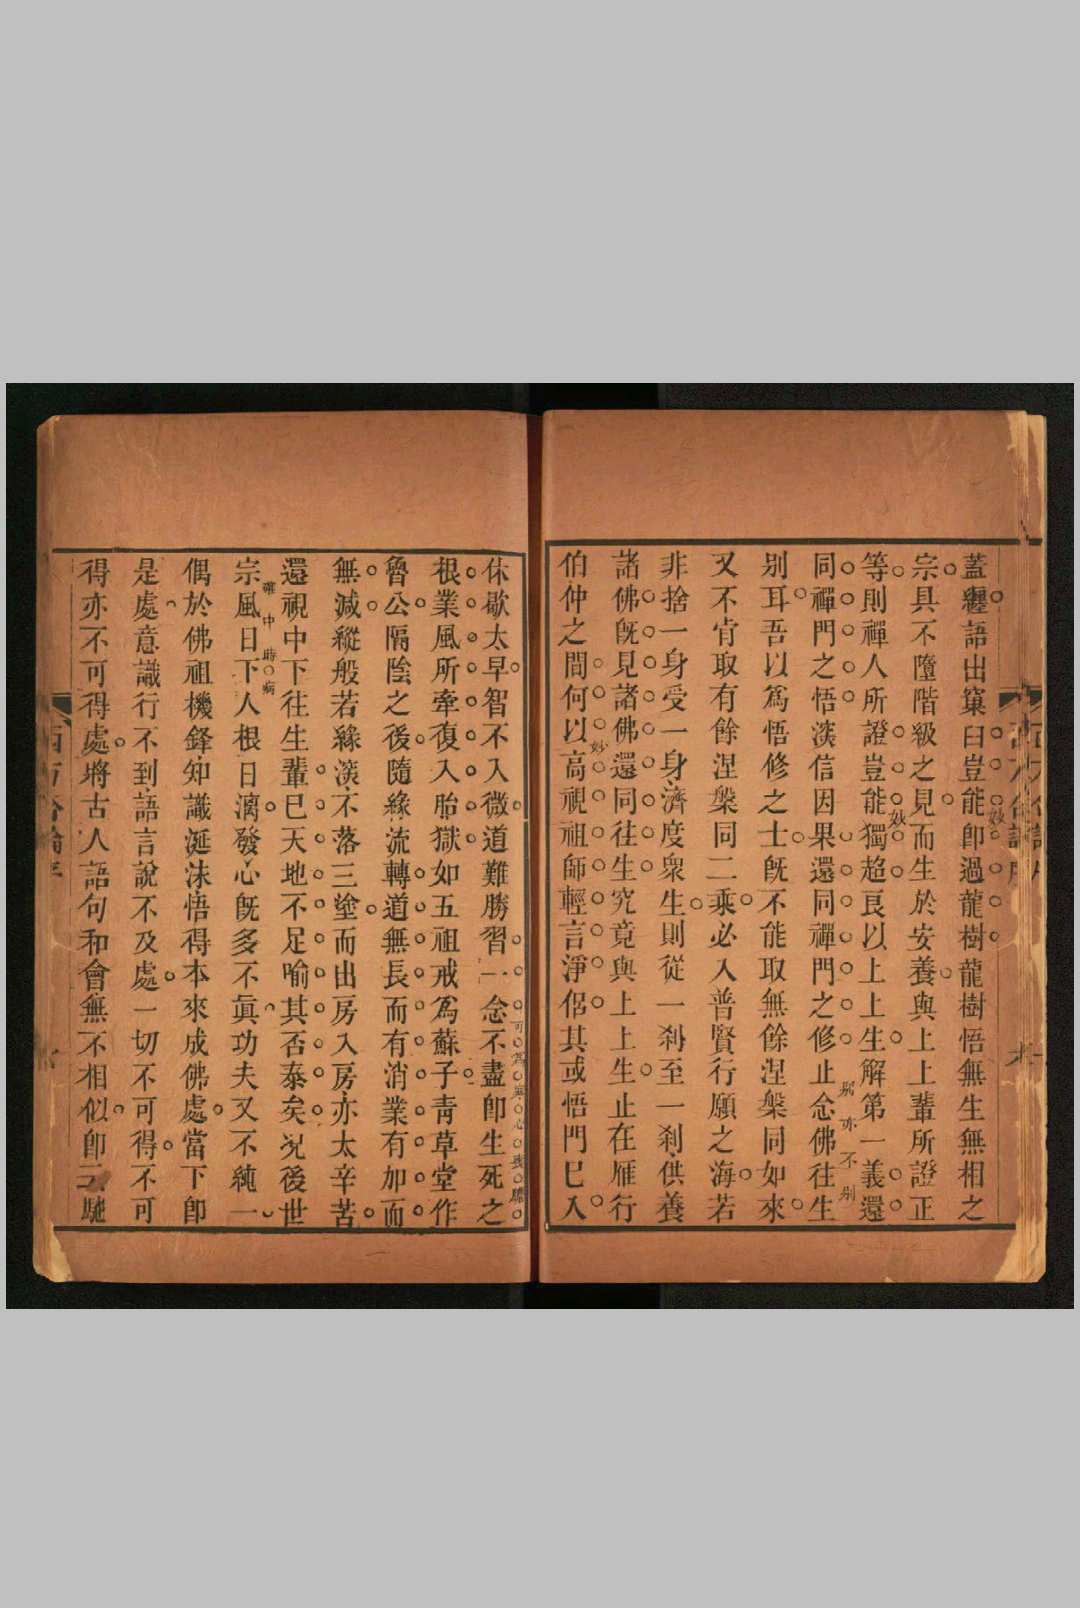 蓋纒語出窠臼豈能卽過龍樹龍樹悟無生無相之
宗具不墮階級之見而生於安養與上上輩所證正
等則禪人所證豈能獨超良以上上生解第一義還
同禪門之悟淡信因果還同禪門之修止念佛往生
別耳吾以爲悟修之士旣不能取無餘涅槃同如來
又不肯取有餘涅槃同二乘必入普賢行願之海若
非捨一身受一身濟度衆生則從一刹至一刹供養
諸佛旣見諸佛還同往生究竟與上上生止在雁行
伯仲之間何以高視祖師輕言淨侶其或悟門巳入
休歇太早智不入微道難勝習一念不盡卽生死之
根業風所牽復入胎獄如五祖戒爲蘇子靑草堂作
魯公隔陰之後隨緣流轉道無長而有消業有加而
無減縱般若緣淡不落三塗而出房入房亦太辛苦
還視中下往生輩巳天地不足喻其否泰矣況後世
宗風日下人根日漓發心旣多不眞功夫又不純一
偶於佛祖機鋒知識涎沫悟得本來成佛處當下卽
是處意識行不到語言說不及處一切不可得不可
得亦不可得處將古人語句和會無不相似卽
妙
妙
那亦不別
妙
可爲寒心喪膽
確中時病